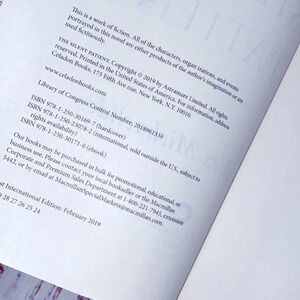 This is a work of fiction. All of the characters, organizations, and events
portrayed in this novel are either products of the author's imagination or are
used fictitiously.
THE SILENT PATIENT. Copyright © 2019 by Astramare Limited. All rights
reserved. Printed in the United States of America. For information, address
Celadon Books, 175 Fifth Ave nue, New York, N.Y. 10010.
www.celadonbooks.com
Library of Congress Control Number:
ISBN 978-1-250-30169-7 (hardcover)
ISBN 978-1-250-23078-2 (international, sold outside the U.S., subject to
rights availability)
ISBN 978-1-250-30171-0 (ebook)
Our books may be purchased in bulk for promotional, educational, or
business use. Please contact your local bookseller or the Macmillan
Corporate and Premium Sales Department at 1-800-221-7945, extension
5442, or by email at MacmillanSpecialMarkets@macmillan.com.
st International Edition: February 2019
29 28 27 26 25 24